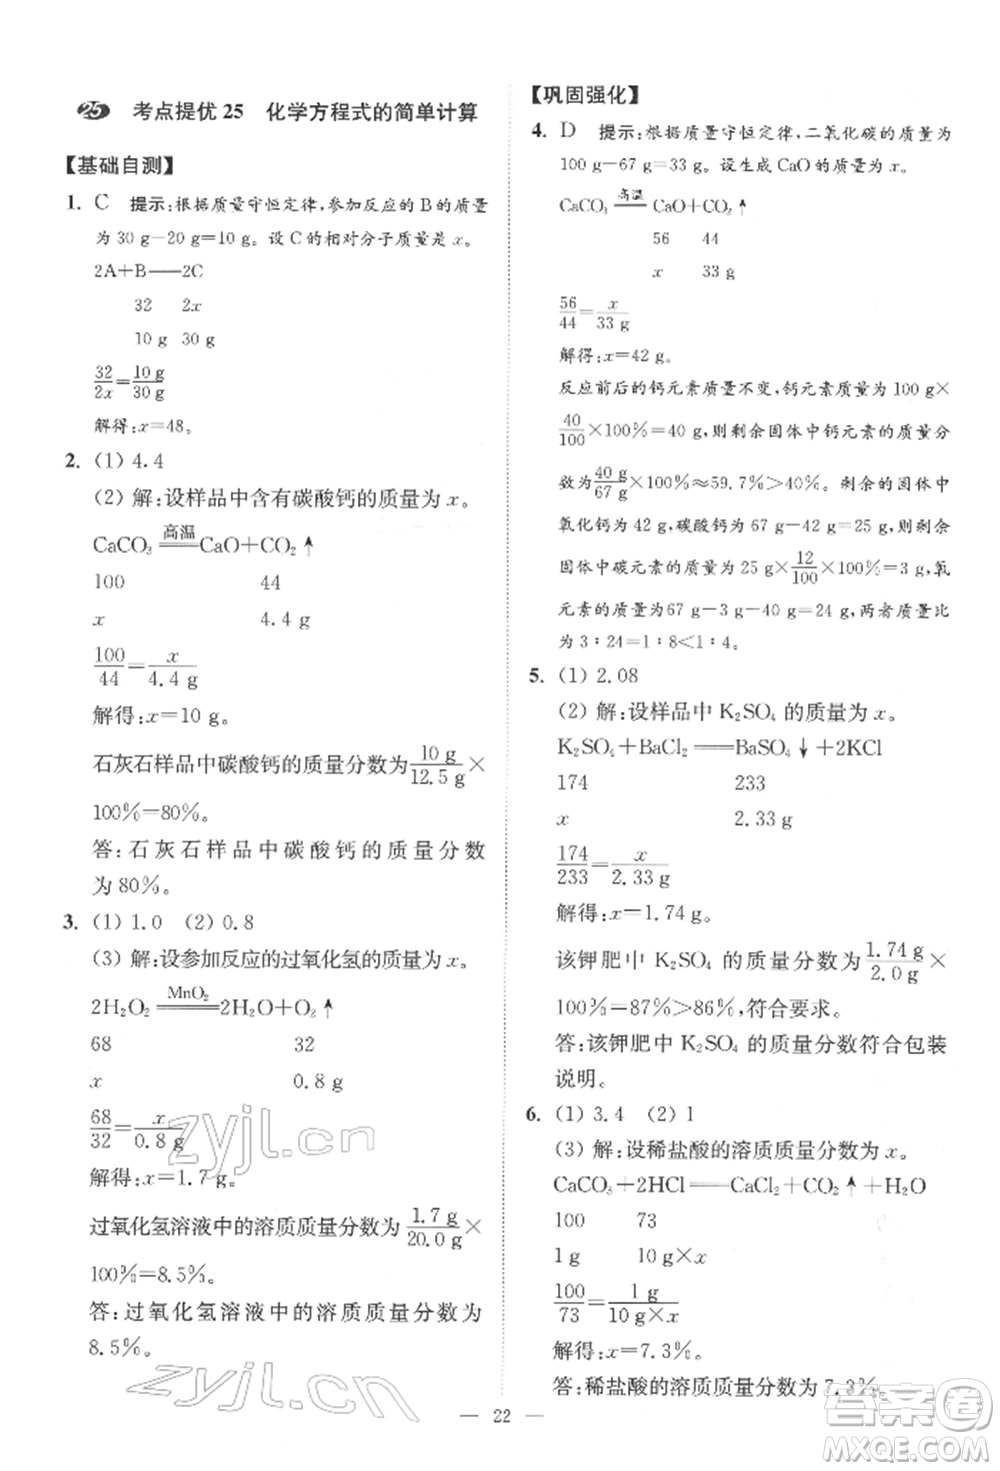 25 考点提优 25 化学方程式的简单计算
【基础自测】
1. C 提示:根据质量守恒定律,参加反应的 B 的质量
为 30 g-20 g=10 g。设 C 的相对分子质量是 x。
2A+B——2C
32 2x
10 g 30 g
32/2x=10 g/30 g
解得:x=48。
2. (1) 4.4
(2) 解:设样品中含有碳酸钙的质量为 x。
高温
CaCO₃══CaO+CO₂↑
100 44
x 4.4 g
100/44=x/4.4 g
解得:x=10 g。
石灰石样品中碳酸钙的质量分数为10 g/12.5 g×
100%=80%。
答:石灰石样品中碳酸钙的质量分数
为 80%。
3. (1) 1.0 (2) 0.8
(3) 解:设参加反应的过氧化氢的质量为 x。
MnO₂
2H₂O₂══2H₂O+O₂↑
68 32
x 0.8 g
68/32=x/0.8 g
解得:x=1.7 g。
过氧化氢溶液中的溶质质量分数为1.7 g/20.0 g×
100%=8.5%。
答:过氧化氢溶液中的溶质质量分数为
8.5%。
【巩固强化】
4. D 提示:根据质量守恒定律,二氧化碳的质量为
100 g-67 g=33 g。设生成 CaO 的质量为 x。
高温
CaCO₃══CaO+CO₂↑
56 44
x 33 g
56/44=x/33 g
解得:x=42 g。
反应前后的钙元素质量不变,钙元素质量为 100 g×
40/100×100%=40 g,则剩余固体中钙元素的质量分
数为40 g/67 g×100%≈59.7%>40%。剩余的固体中
氧化钙为 42 g,碳酸钙为 67 g-42 g=25 g,则剩余
固体中碳元素的质量为 25 g×12/100×100%=3 g,氧
元素的质量为67 g-3 g-40 g=24 g,两者质量比
为 3∶24=1∶8<1∶4。
5. (1) 2.08
(2) 解:设样品中 K₂SO₄ 的质量为 x。
K₂SO₄+BaCl₂══BaSO₄↓+2KCl
174 233
x 2.33 g
174/233=x/2.33 g
解得:x=1.74 g。
该钾肥中 K₂SO₄ 的质量分数为1.74 g/2.0 g×
100%=87%>86%,符合要求。
答:该钾肥中 K₂SO₄ 的质量分数符合包装
说明。
6. (1) 3.4 (2) 1
(3) 解:设稀盐酸的溶质质量分数为 x。
CaCO₃+2HCl══CaCl₂+CO₂↑+H₂O
100 73
1 g 10 g×x
100/73=1 g/10 g×x
解得:x=7.3%。
答:稀盐酸的溶质质量分数为 7.3%。
— 22 —
zyjl.cn
zyjl.cn
答案圈
MXQE.COM